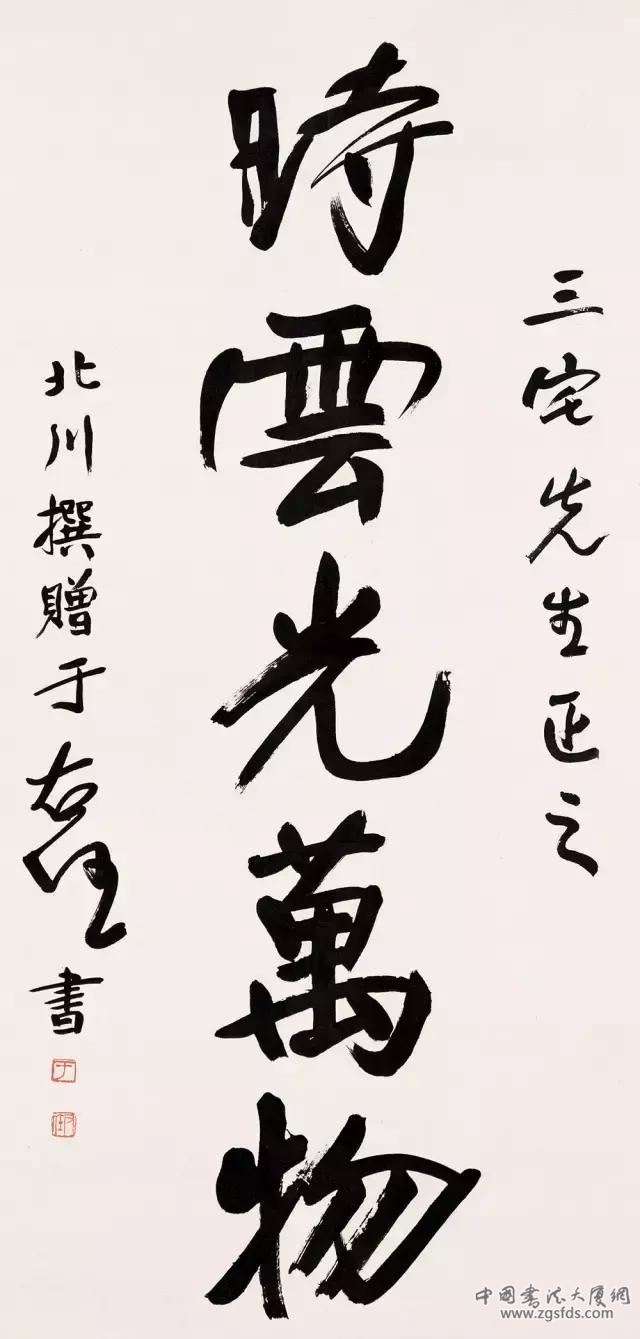 三宅先生正之
時雲光萬物
北川撰贈于右任書
于
中国书法大厦网
www.zgsfds.com